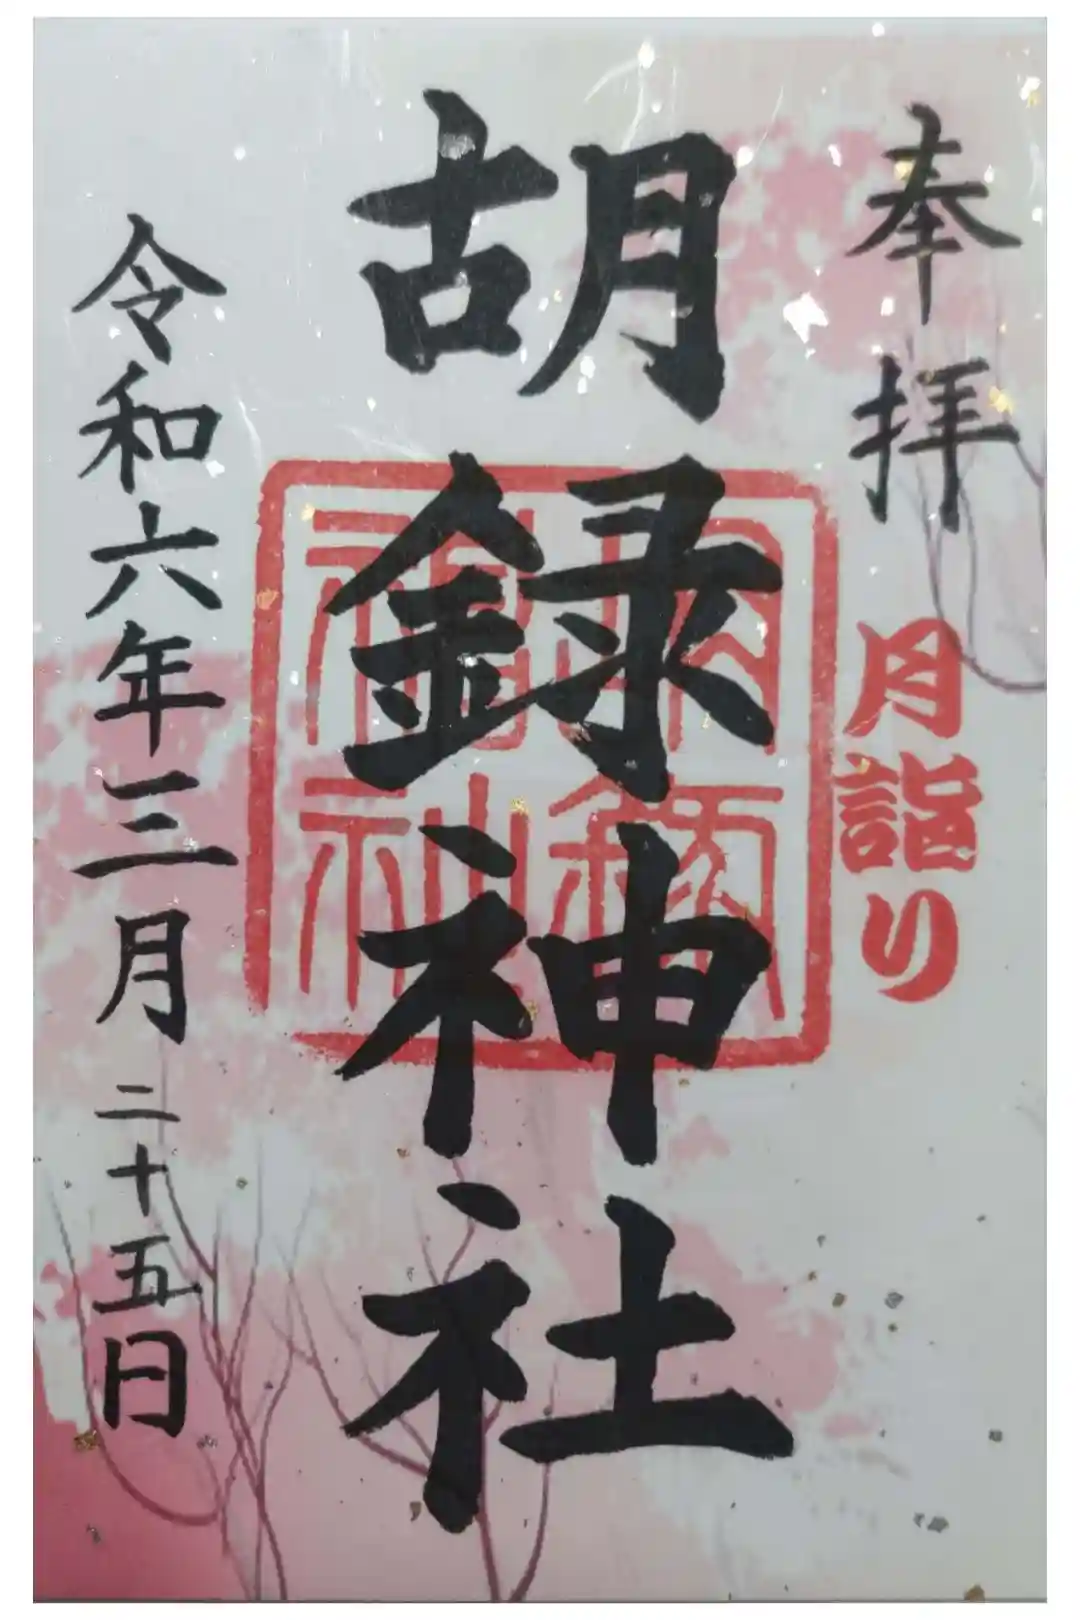 奉拝
月詣り
胡録神社
令和六年三月二十五日